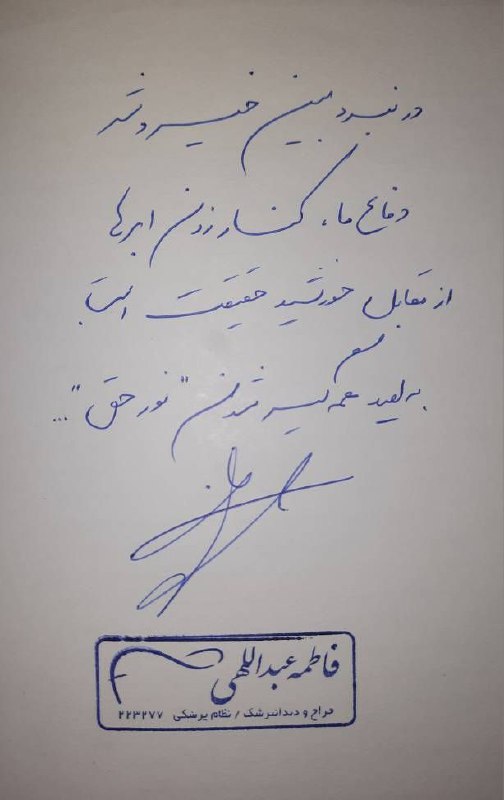 در نبرد بین خیر و شر
دفاع ما، کنار زدن ابرها
از مقابل خورشید حقیقت است
به امید همه‌گیر شدن "نور حق"...
فاطمه عبداللهی
جراح و دندانپزشک / نظام پزشکی ۲۲۳۲۷۷